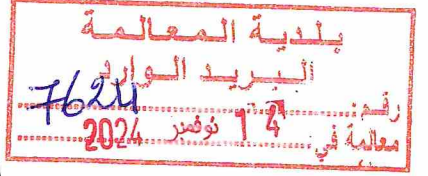 بلدية المعالمة
البريد الوارد
رقم: 7624
معالمة في 14 نوفمبر 2024